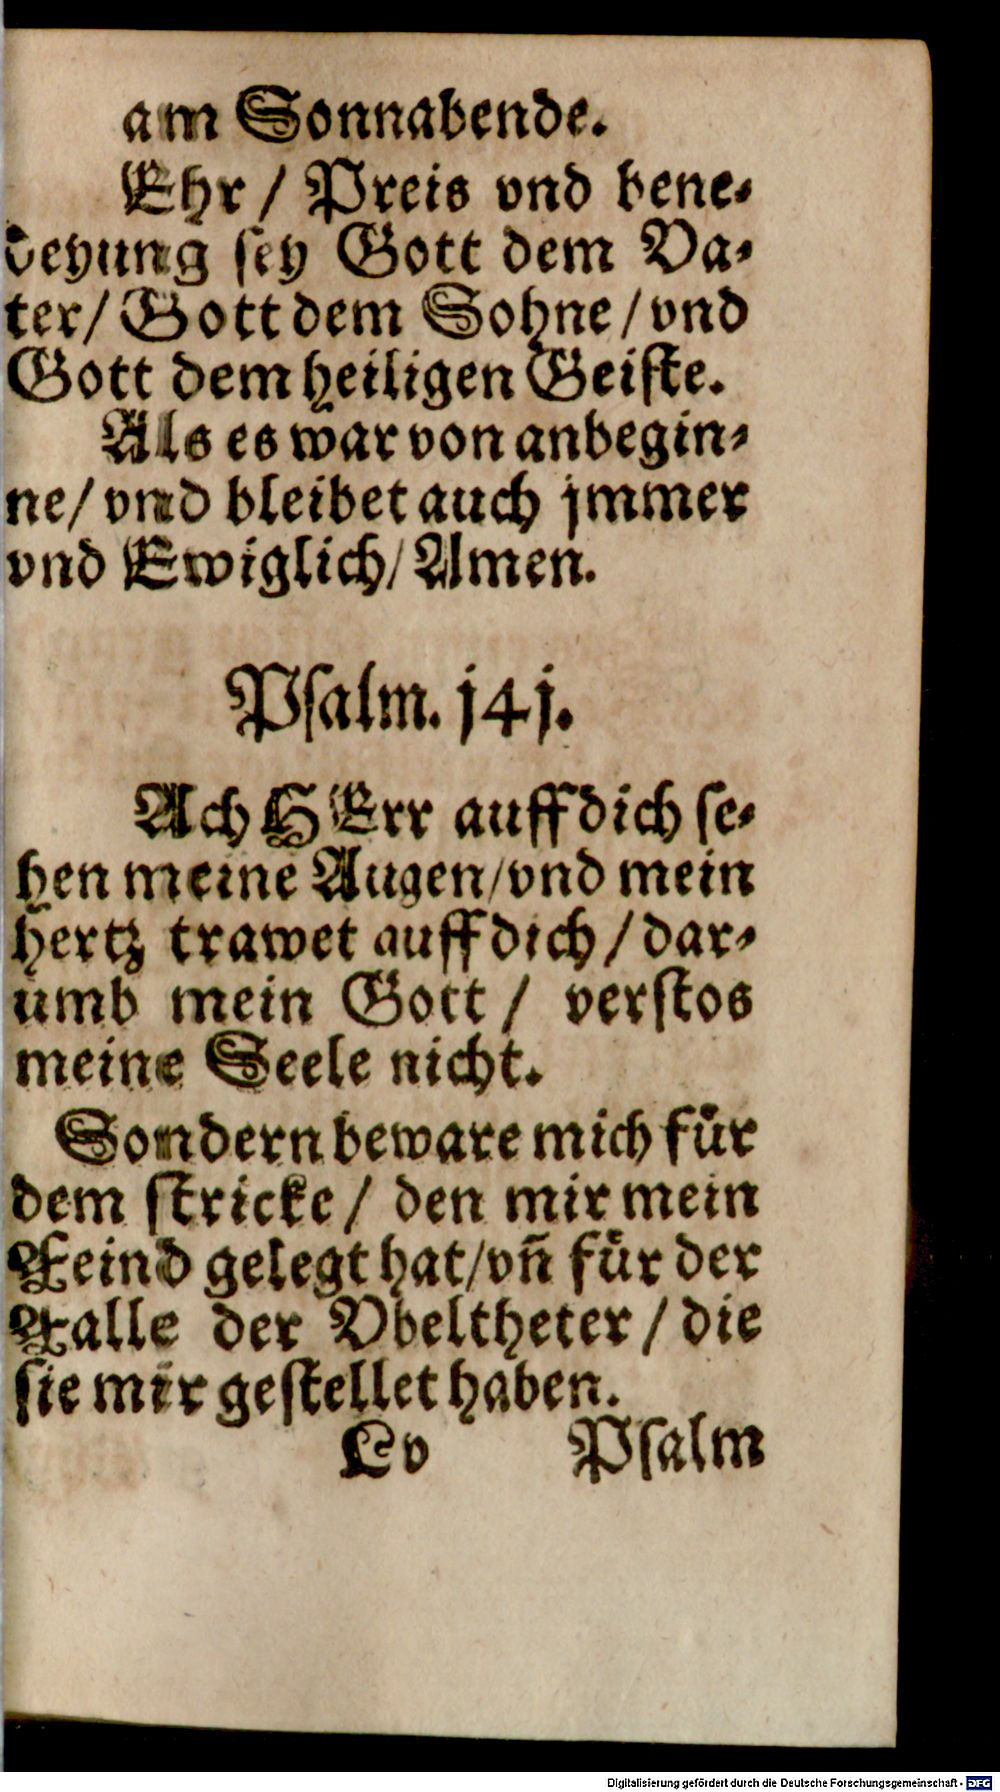 am Sonnabende.
Ehr / Preis vnd bene-
deyung sey Gott dem Va-
ter / Gott dem Sohne / vnd
Gott dem heiligen Geiste.
Als es war von anbegin-
ne / vnd bleibet auch jmmer
vnd Ewiglich / Amen.
Psalm. j4j.
Ach HErr auff dich se-
hen meine Augen / vnd mein
hertz trawet auff dich / dar-
umb mein Gott / verstos
meine Seele nicht.
Sondern beware mich für
dem stricke / den mir mein
Feind gelegt hat / vñ für der
Falle der Vbeltheter / die
sie mir gestellet haben.
L v Psalm
Digitalisierung gefördert durch die Deutsche Forschungsgemeinschaft - DFG